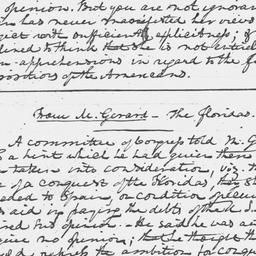 opinion. But you are not ignorant
has never manifested her views
ject with sufficient explicitness; if
clined to think that she is not entirely
om apprehensions in regard to the f
positions of the Americans.
From M. Gerard — The Floridas.
A committee of Congress told M. G
a hint which he had given them
taken into consideration, viz. th
of a conquest of the Floridas, they sh
ceded to Spain, on condition of
aid in paying the debts of the U. S.
his opinion. He said he was
give no opinion; that he thought th
the ambition for conq